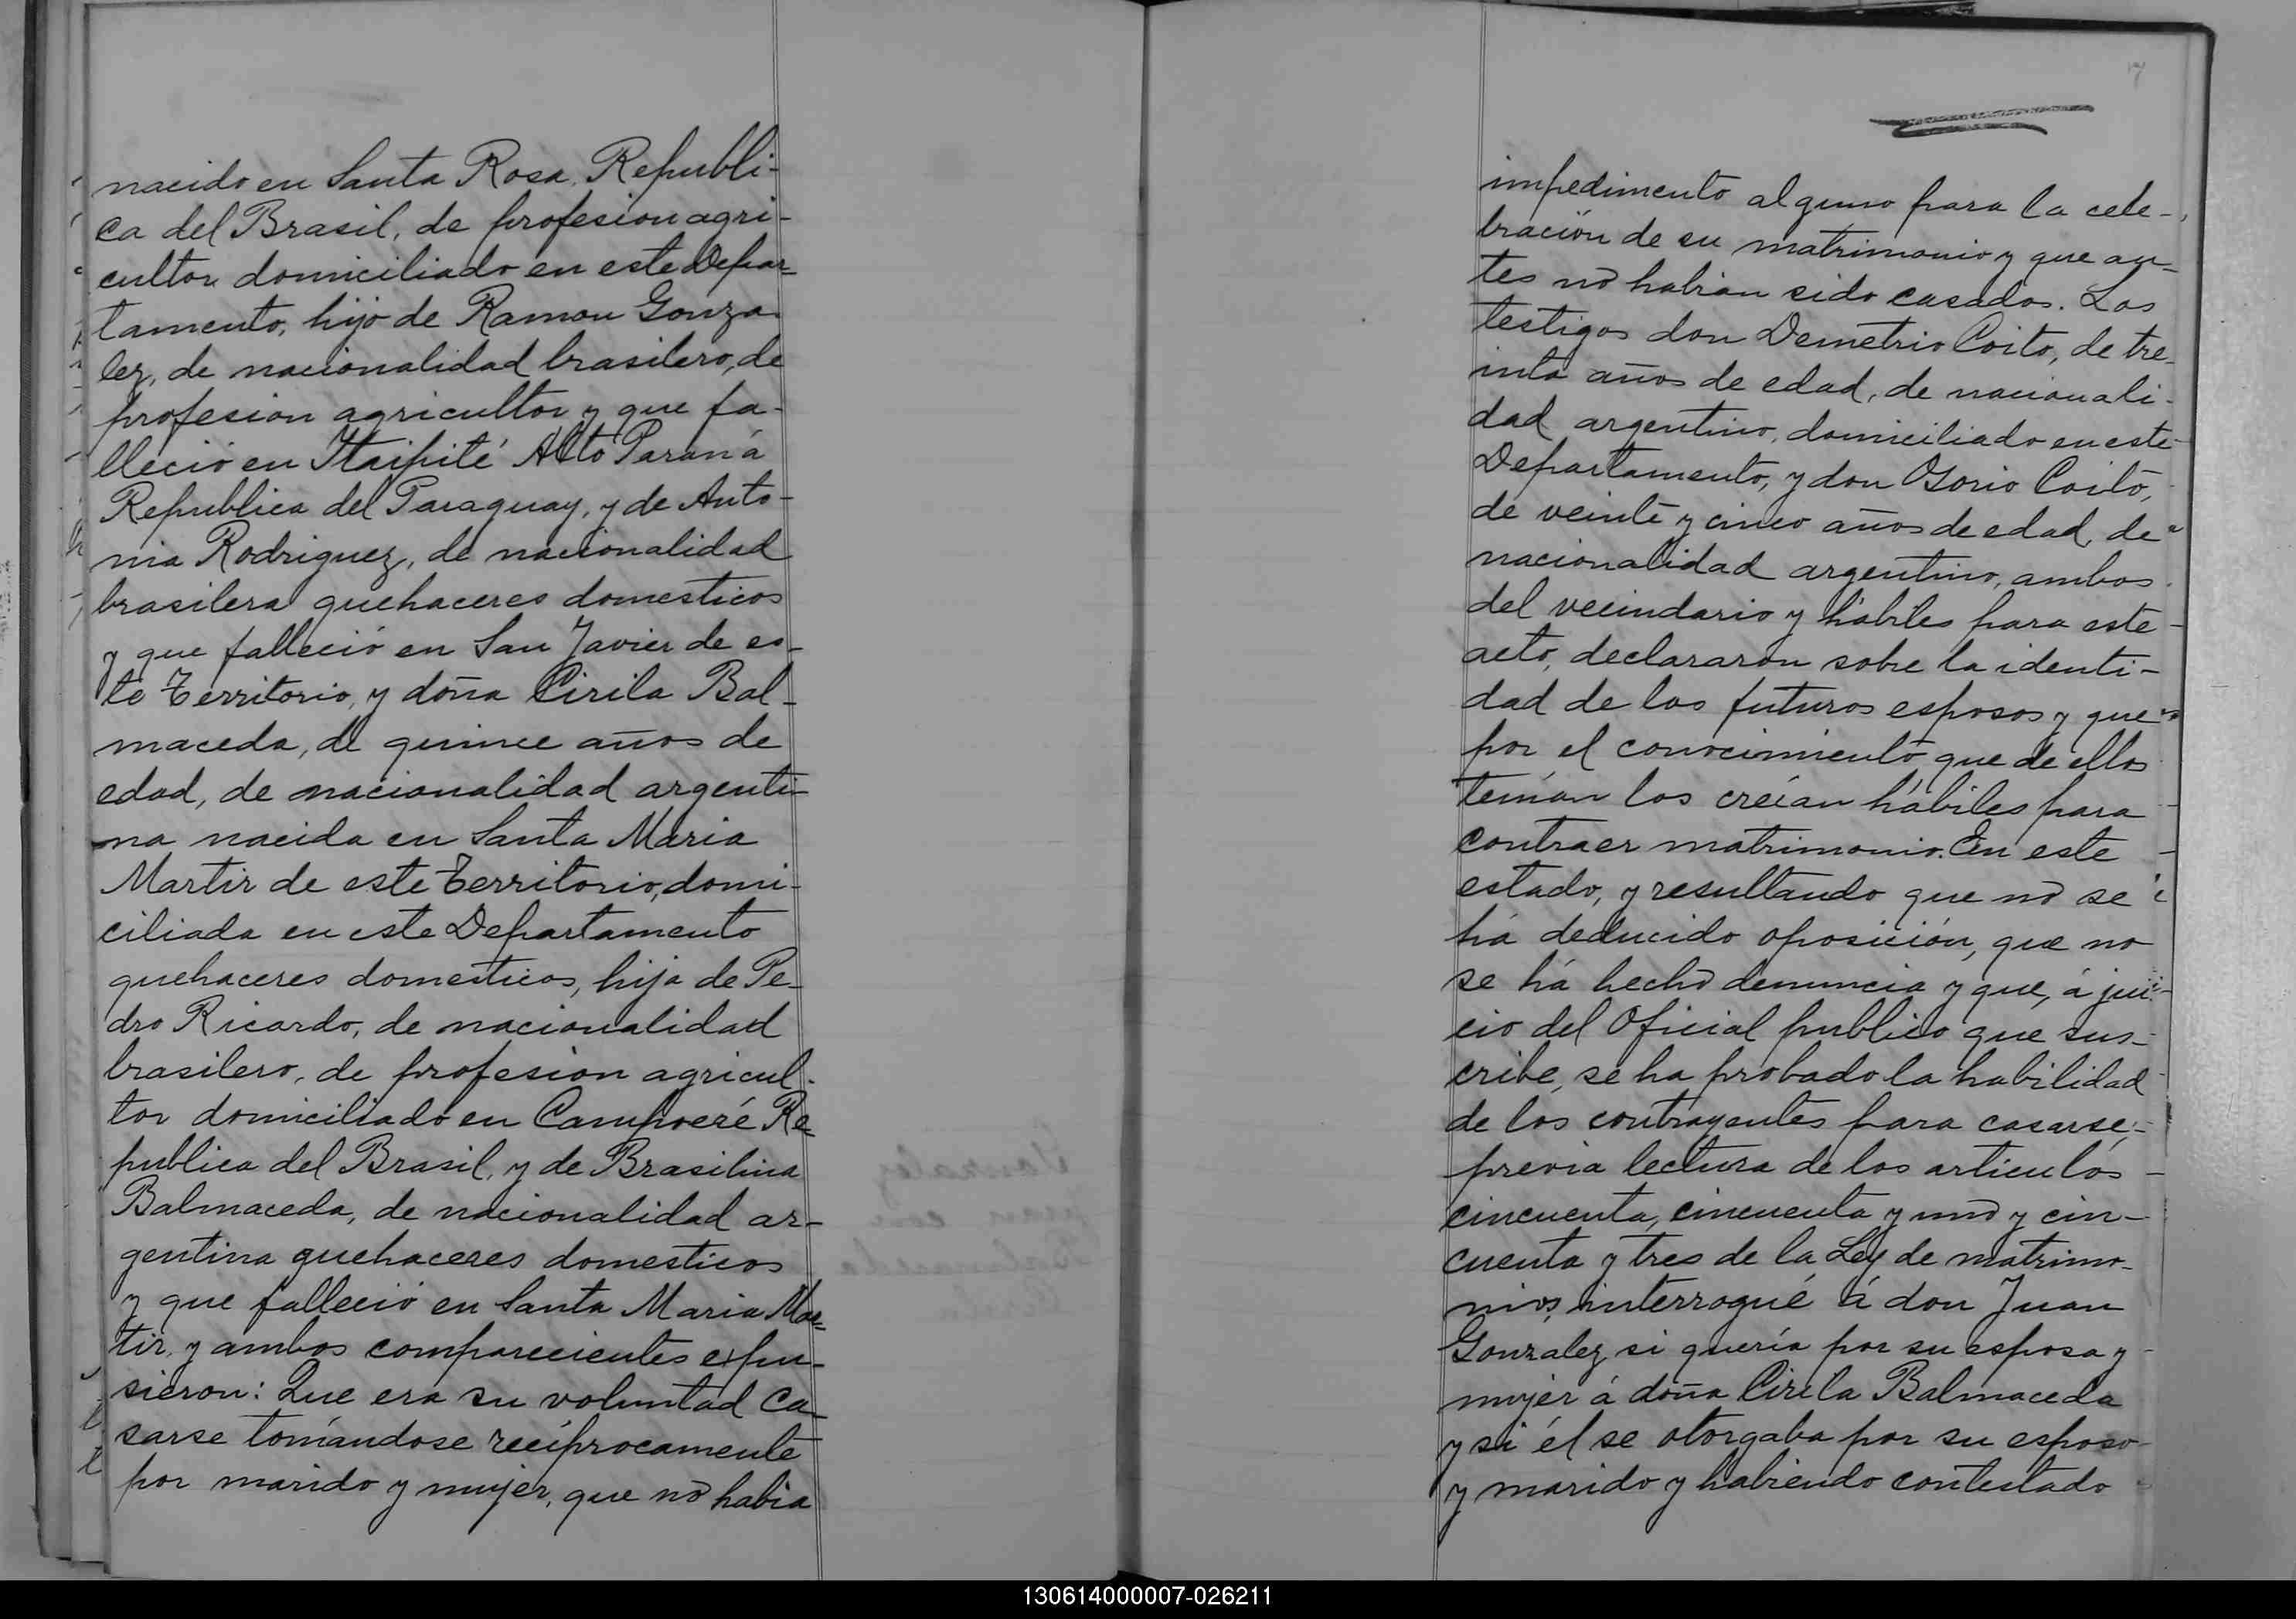 nacido en Santa Rosa, Republi-
ca del Brasil, de profesion agri-
cultor domiciliado en este Depar-
tamento, hijo de Ramon Gonza-
lez, de nacionalidad brasilero, de
profesion agricultor y que fa-
lleció en Itaipité Alto Paraná
Republica del Paraguay, y de Anto-
nia Rodriguez, de nacionalidad
brasilera quehaceres domesticos
y que falleció en San Javier de es-
te Territorio, y doña Cirila Bal-
maceda, de quince años de
edad, de nacionalidad argenti-
na nacida en Santa Maria
Martir de este Territorio, domi-
ciliada en este Departamento
quehaceres domesticos, hija de Pe-
dro Ricardo, de nacionalidad
brasilero, de profesion agricul-
tor domiciliado en Campoeré Re-
publica del Brasil, y de Brasilina
Balmaceda, de nacionalidad ar-
gentina quehaceres domesticos
y que falleció en Santa Maria Mar-
tir, y ambos comparecientes expu-
sieron: Que era su voluntad ca-
sarse tomándose recíprocamente
por marido y mujer, que no habia
7
impedimento alguno para la cele-
bración de su matrimonio y que an-
tes no habian sido casados. Los
testigos don Demetrio Coito, de tre-
inta años de edad, de nacionali-
dad argentino, domiciliado en este
Departamento, y don Osorio Coito,
de veinte y cinco años de edad, de
nacionalidad argentino, ambos
del vecindario y hábiles para este
acto, declararon sobre la identi-
dad de los futuros esposos y que
por el conocimiento que de ellos
tenían los creían hábiles para
contraer matrimonio. En este
estado, y resultando que no se
há deducido oposición, que no
se há hecho denuncia y que, á jui-
cio del Oficial publico que sus-
cribe, se ha probado la habilidad
de los contrayentes para casarse,
previa lectura de los articulos
cincuenta, cincuenta y uno y cin-
cuenta y tres de la Ley de matrimo-
nios, interrogué á don Juan
Gonzalez si quería por su esposa y
mujer á doña Cirila Balmaceda
y si él se otorgaba por su esposo
y marido y habiendo contestado
130614000007-026211